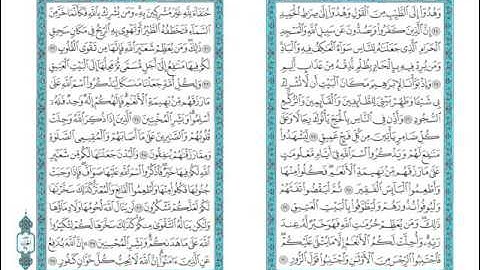 وَهُدُوٓا۟ إِلَى ٱلطَّيِّبِ مِنَ ٱلْقَوْلِ وَهُدُوٓا۟ إِلَىٰ صِرَٰطِ ٱلْحَمِيدِ
٢٤ إِنَّ ٱلَّذِينَ كَفَرُوا۟ وَيَصُدُّونَ عَن سَبِيلِ ٱللَّهِ وَٱلْمَسْجِدِ
ٱلْحَرَامِ ٱلَّذِى جَعَلْنَٰهُ لِلنَّاسِ سَوَآءً ٱلْعَٰكِفُ فِيهِ وَٱلْبَادِ
وَمَن يُرِدْ فِيهِ بِإِلْحَادٍۭ بِظُلْمٍ نُّذِقْهُ مِنْ عَذَابٍ أَلِيمٍ
٢٥ وَإِذْ بَوَّأْنَا لِإِبْرَٰهِيمَ مَكَانَ ٱلْبَيْتِ أَن لَّا تُشْرِكْ
بِى شَيْـًٔا وَطَهِّرْ بَيْتِىَ لِلطَّآئِفِينَ وَٱلْقَآئِمِينَ وَٱلرُّكَّعِ
ٱلسُّجُودِ ٢٦ وَأَذِّن فِى ٱلنَّاسِ بِٱلْحَجِّ يَأْتُوكَ رِجَالًا وَعَلَىٰ
كُلِّ ضَامِرٍ يَأْتِينَ مِن كُلِّ فَجٍّ عَمِيقٍ ٢٧ لِّيَشْهَدُوا۟
مَنَٰفِعَ لَهُمْ وَيَذْكُرُوا۟ ٱسْمَ ٱللَّهِ فِىٓ أَيَّامٍ مَّعْلُومَٰتٍ
عَلَىٰ مَا رَزَقَهُم مِّنۢ بَهِيمَةِ ٱلْأَنْعَٰمِ فَكُلُوا۟ مِنْهَا
وَأَطْعِمُوا۟ ٱلْبَآئِسَ ٱلْفَقِيرَ ٢٨ ثُمَّ لْيَقْضُوا۟ تَفَثَهُمْ
وَلْيُوفُوا۟ نُذُورَهُمْ وَلْيَطَّوَّفُوا۟ بِٱلْبَيْتِ ٱلْعَتِيقِ ٢٩
ذَٰلِكَ وَمَن يُعَظِّمْ حُرُمَٰتِ ٱللَّهِ فَهُوَ خَيْرٌ لَّهُۥ عِندَ
رَبِّهِۦ وَأُحِلَّتْ لَكُمُ ٱلْأَنْعَٰمُ إِلَّا مَا يُتْلَىٰ عَلَيْكُمْ
فَٱجْتَنِبُوا۟ ٱلرِّجْسَ مِنَ ٱلْأَوْثَٰنِ وَٱجْتَنِبُوا۟ قَوْلَ ٱلزُّورِ
حُنَفَآءَ لِلَّهِ غَيْرَ مُشْرِكِينَ بِهِۦ وَمَن يُشْرِكْ بِٱللَّهِ فَكَأَنَّمَا خَرَّ مِنَ
ٱلسَّمَآءِ فَتَخْطَفُهُ ٱلطَّيْرُ أَوْ تَهْوِى بِهِ ٱلرِّيحُ فِى مَكَانٍ سَحِيقٍ
٣١ ذَٰلِكَ وَمَن يُعَظِّمْ شَعَٰٓئِرَ ٱللَّهِ فَإِنَّهَا مِن تَقْوَى ٱلْقُلُوبِ ٣٢
لَكُمْ فِيهَا مَنَٰفِعُ إِلَىٰٓ أَجَلٍ مُّسَمًّى ثُمَّ مَحِلُّهَآ إِلَى ٱلْبَيْتِ ٱلْعَتِيقِ
٣٣ وَلِكُلِّ أُمَّةٍ جَعَلْنَا مَنسَكًا لِّيَذْكُرُوا۟ ٱسْمَ ٱللَّهِ عَلَىٰ
مَا رَزَقَهُم مِّنۢ بَهِيمَةِ ٱلْأَنْعَٰمِ فَإِلَٰهُكُمْ إِلَٰهٌ وَٰحِدٌ فَلَهُۥٓ
أَسْلِمُوا۟ وَبَشِّرِ ٱلْمُخْبِتِينَ ٣٤ ٱلَّذِينَ إِذَا ذُكِرَ ٱللَّهُ وَجِلَتْ
قُلُوبُهُمْ وَٱلصَّٰبِرِينَ عَلَىٰ مَآ أَصَابَهُمْ وَٱلْمُقِيمِى ٱلصَّلَوٰةِ
وَمِمَّا رَزَقْنَٰهُمْ يُنفِقُونَ ٣٥ وَٱلْبُدْنَ جَعَلْنَٰهَا لَكُم مِّن شَعَٰٓئِرِ
ٱللَّهِ لَكُمْ فِيهَا خَيْرٌ فَٱذْكُرُوا۟ ٱسْمَ ٱللَّهِ عَلَيْهَا صَوَآفَّ فَإِذَا وَجَبَتْ
جُنُوبُهَا فَكُلُوا۟ مِنْهَا وَأَطْعِمُوا۟ ٱلْقَانِعَ وَٱلْمُعْتَرَّ كَذَٰلِكَ سَخَّرْنَٰهَا
لَكُمْ لَعَلَّكُمْ تَشْكُرُونَ ٣٦ لَن يَنَالَ ٱللَّهَ لُحُومُهَا وَلَا دِمَآؤُهَا
وَلَٰكِن يَنَالُهُ ٱلتَّقْوَىٰ مِنكُمْ كَذَٰلِكَ سَخَّرَهَا لَكُمْ لِتُكَبِّرُوا۟
ٱللَّهَ عَلَىٰ مَا هَدَىٰكُمْ وَبَشِّرِ ٱلْمُحْسِنِينَ ٣٧ إِنَّ ٱللَّهَ يُدَٰفِعُ
عَنِ ٱلَّذِينَ ءَامَنُوٓا۟ إِنَّ ٱللَّهَ لَا يُحِبُّ كُلَّ خَوَّانٍ كَفُورٍ ٣٨